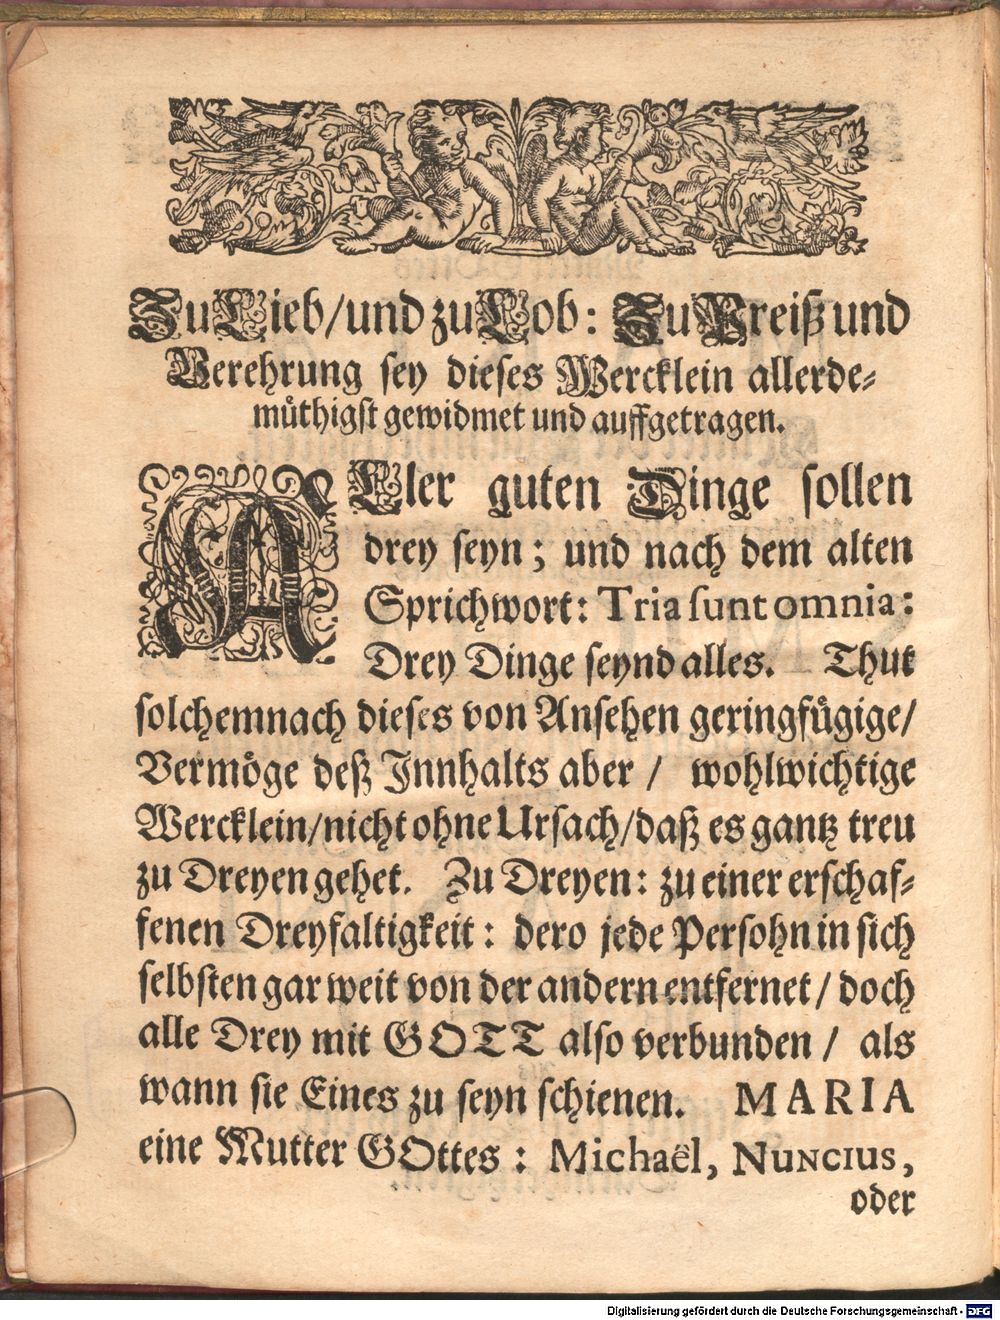 Zu Lieb/und zu Lob: Zu Preiß und
Verehrung sey dieses Wercklein allerde-
muͤthigst gewidmet und auffgetragen.
ALler guten Dinge sollen
drey seyn; und nach dem alten
Sprichwort: Tria sunt omnia:
Drey Dinge seynd alles. Thut
solchemnach dieses von Ansehen geringfuͤgige/
Vermoͤge deß Innhalts aber / wohlwichtige
Wercklein/nicht ohne Ursach/daß es gantz treu
zu Dreyen gehet. Zu Dreyen: zu einer erschaf-
fenen Dreyfaltigkeit: dero jede Persohn in sich
selbsten gar weit von der andern entfernet / doch
alle Drey mit GOTT also verbunden / als
wann sie Eines zu seyn schienen. MARIA
eine Mutter GOttes: Michaël, NUNCIUS,
oder
Digitalisierung gefördert durch die Deutsche Forschungsgemeinschaft - DFG